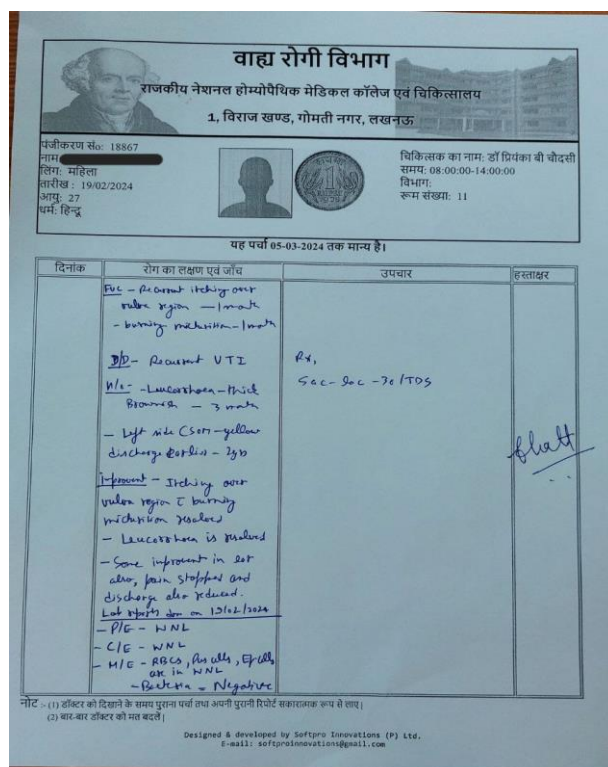 वाह्य रोगी विभाग
राजकीय नेशनल होम्योपैथिक मेडिकल कॉलेज एवं चिकित्सालय
1, विराज खण्ड, गोमती नगर, लखनऊ
पंजीकरण सं०: 18867
नाम
लिंग: महिला
तारीख : 19/02/2024
आयु: 27
धर्म: हिन्दू
चिकित्सक का नाम: डॉ प्रियंका बी चौदसी
समय: 08:00:00-14:00:00
विभाग:
रूम संख्या: 11
यह पर्चा 05-03-2024 तक मान्य है।
दिनांक रोग का लक्षण एवं जाँच उपचार हस्ताक्षर
FUC - Recurrent itching over
vulva region - 1 month
- burning micturition - 1 month
D/D - Recurrent UTI
H/o - Leucorrhoea - thick
Brownish - 3 month
- Left side CSOM - yellow
discharge earlier - 2yrs
Improvment - Itching over
vulva region c̅ burning
micturition resolved
- Leucorrhoea is resolved
- Some improvment in ear
also, pain stopped and
discharge also reduced.
Lab reports done on 19/02/2024
- P/E - WNL
- C/E - WNL
- M/E - RBCs, Pus cells, Ep cells
are in WNL
- Bacteria = Negative
Rx,
Sac-lac-30/TDS
Bhatt
नोट :- (1) डॉक्टर को दिखाने के समय पुराना पर्चा तथा अपनी पुरानी रिपोर्ट सकारात्मक रूप से लाए|
(2) बार-बार डॉक्टर को मत बदलें|
Designed & developed by Softpro Innovations (P) Ltd.
E-mail: softproinnovations@gmail.com